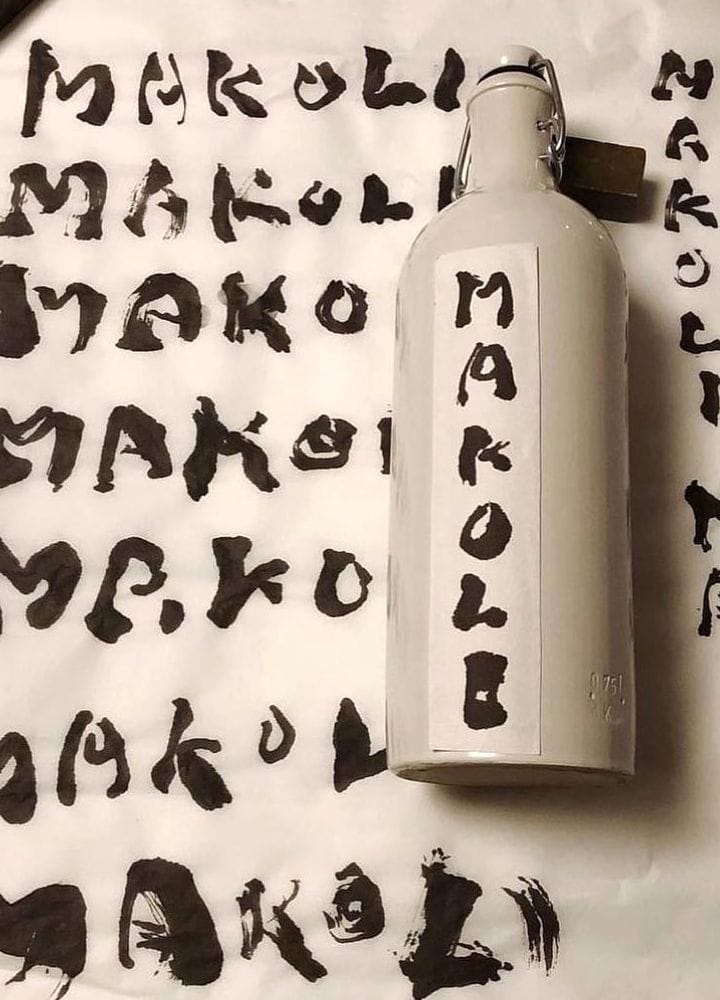 MAKOLI
MAKOLI
MAKO
MAKO
MAKO
MAKOL
MAKOL
MAKOLE
0,75 l
MAKOLI MA